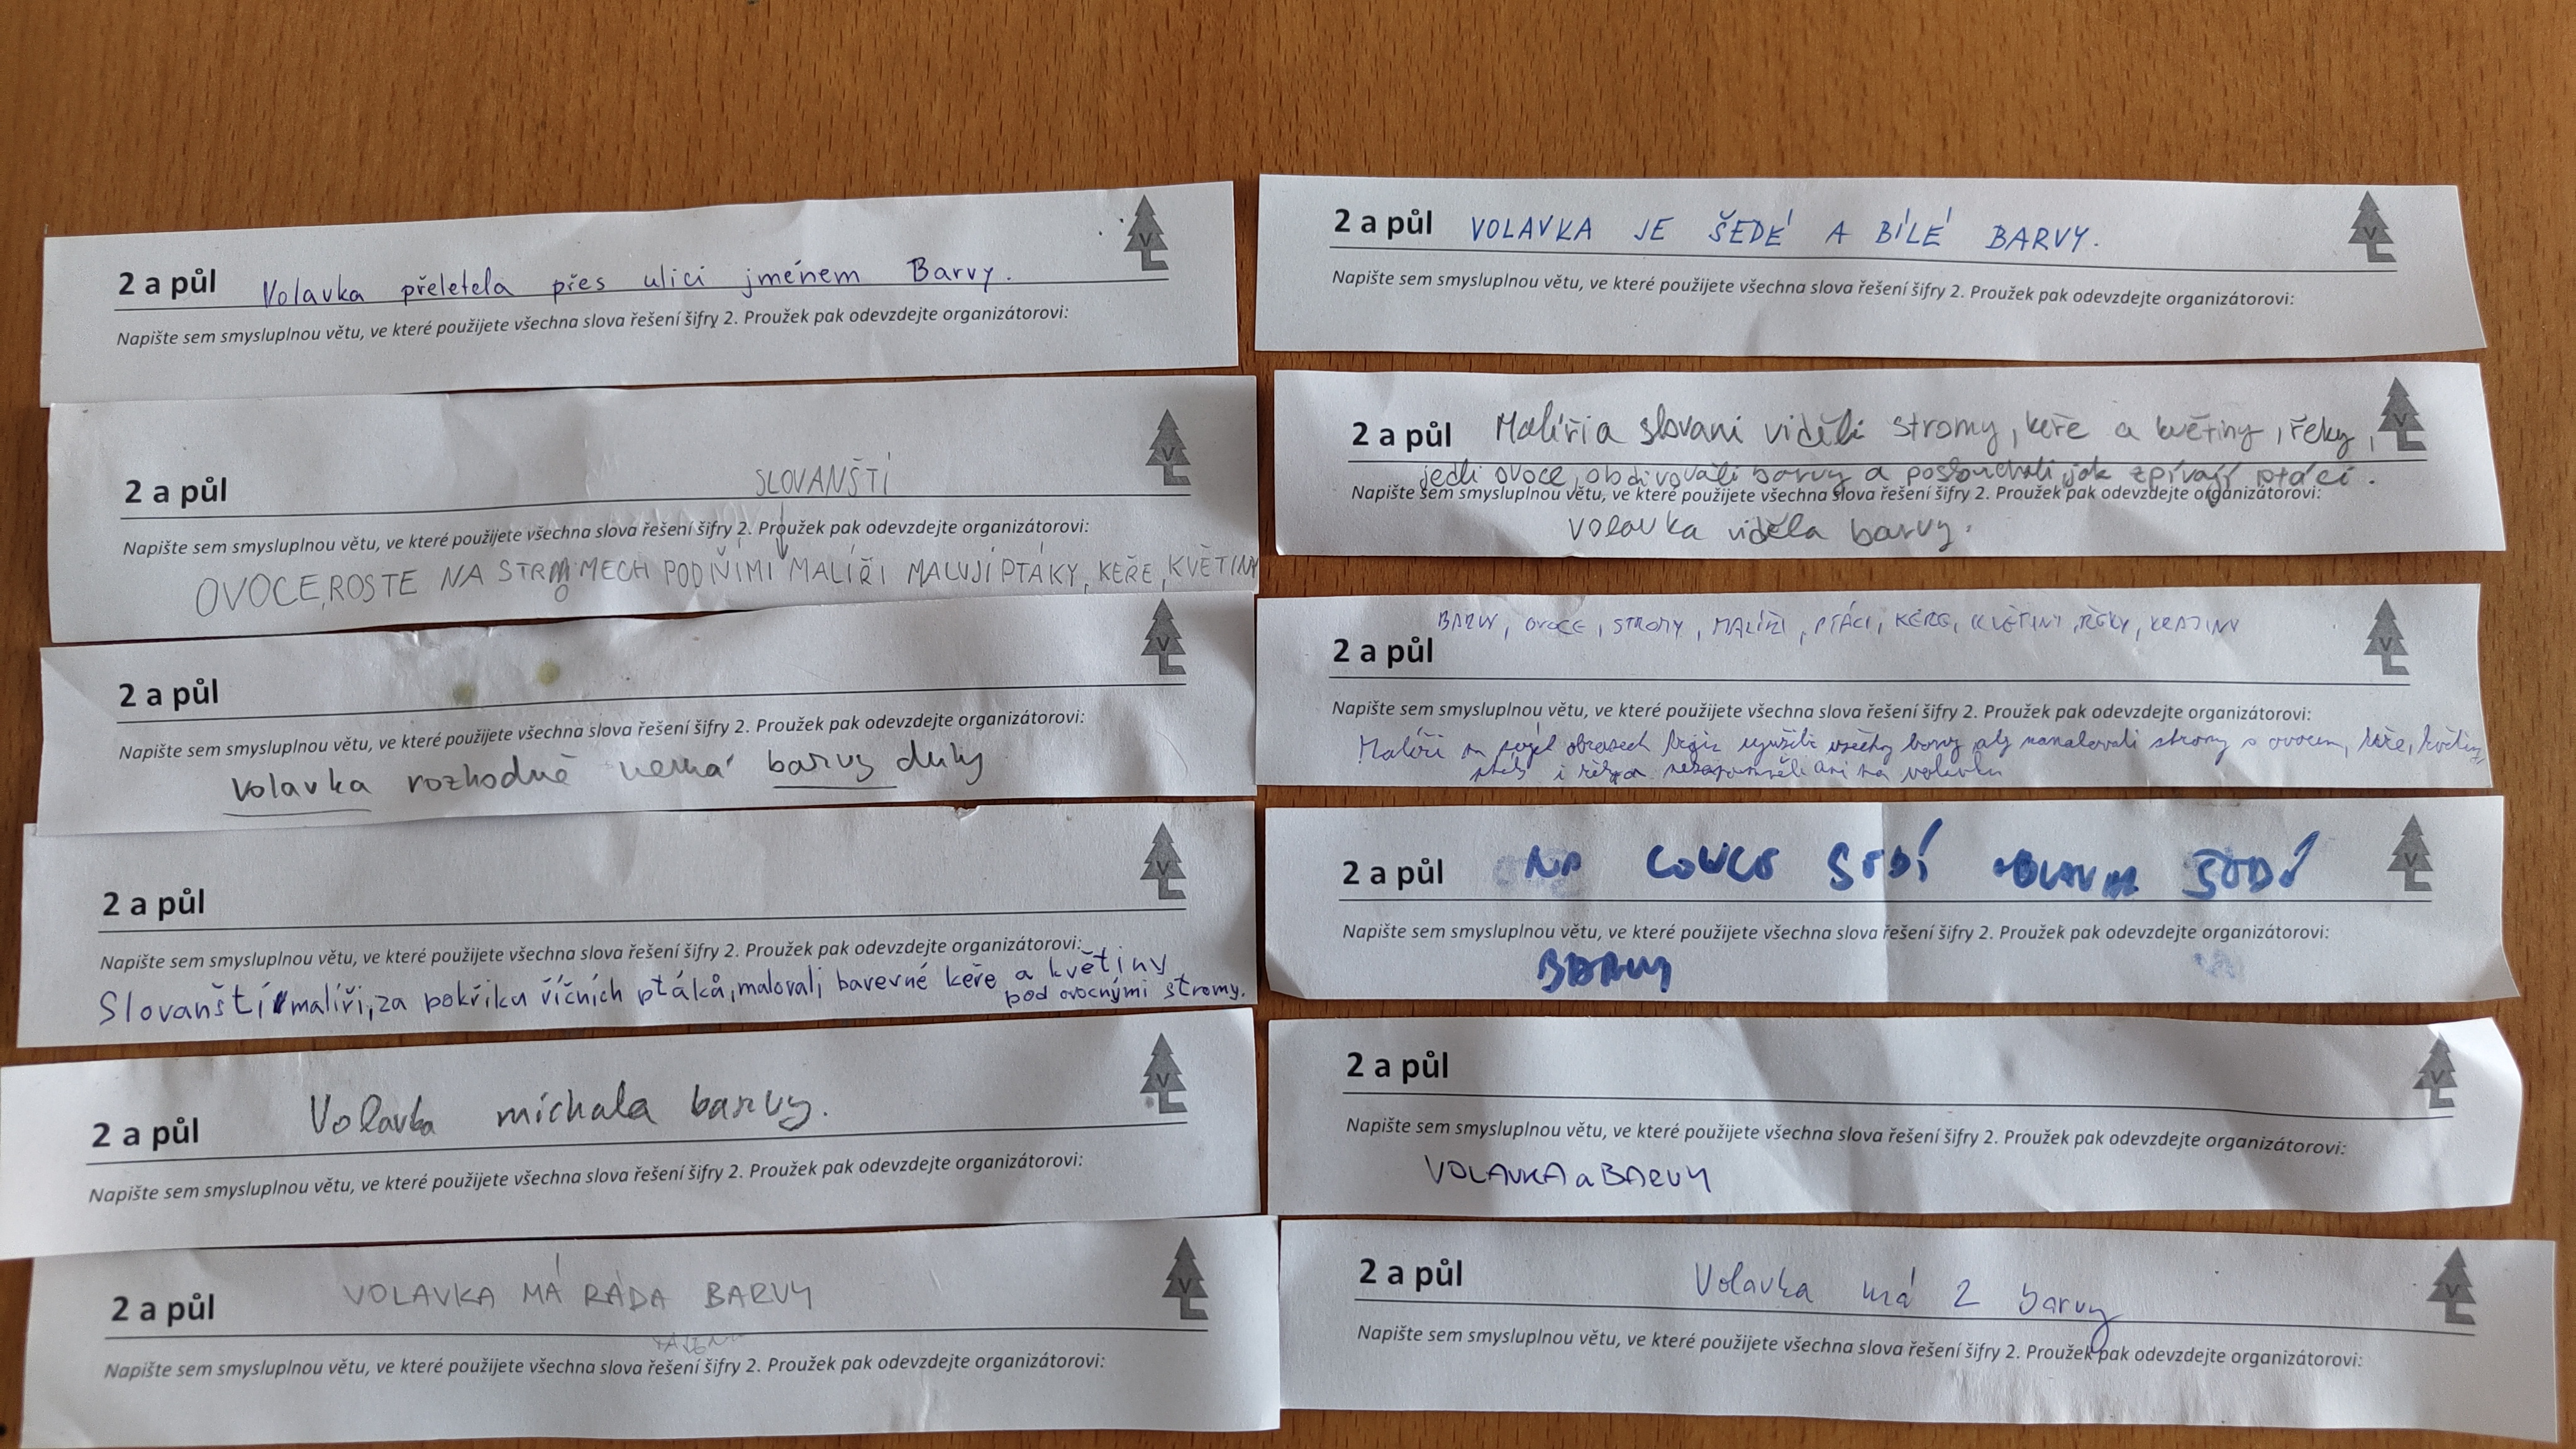 2 a půl Volavka přeletela přes ulici jménem Barvy.
Napište sem smysluplnou větu, ve které použijete všechna slova řešení šifry 2. Proužek pak odevzdejte organizátorovi:
V
2 a půl SLOVANŠTÍ
Napište sem smysluplnou větu, ve které použijete všechna slova řešení šifry 2. Proužek pak odevzdejte organizátorovi:
OVOCE, ROSTE NA STROMECH POD NIMI MALÍŘI MALUJÍ PTÁKY, KEŘE, KVĚTINY
V
2 a půl
Napište sem smysluplnou větu, ve které použijete všechna slova řešení šifry 2. Proužek pak odevzdejte organizátorovi:
Volavka rozhodně nemá barvy duhy
V
2 a půl
Napište sem smysluplnou větu, ve které použijete všechna slova řešení šifry 2. Proužek pak odevzdejte organizátorovi:
Slovanští malíři, za pokřiku říčních ptáků, malovali barevné keře a květiny
pod ovocnými stromy.
V
2 a půl Volavka míchala barvy.
Napište sem smysluplnou větu, ve které použijete všechna slova řešení šifry 2. Proužek pak odevzdejte organizátorovi:
V
2 a půl VOLAVKA MÁ RÁDA BARVY
Napište sem smysluplnou větu, ve které použijete všechna slova řešení šifry 2. Proužek pak odevzdejte organizátorovi:
V
2 a půl VOLAVKA JE ŠEDÉ A BÍLÉ BARVY.
Napište sem smysluplnou větu, ve které použijete všechna slova řešení šifry 2. Proužek pak odevzdejte organizátorovi:
V
2 a půl Malíři a slovani viděli stromy, keře a květiny, řeky,
jedli ovoce, obdivovali barvy a poslouchali, jak zpívají ptáci.
Napište sem smysluplnou větu, ve které použijete všechna slova řešení šifry 2. Proužek pak odevzdejte organizátorovi:
Volavka viděla barvy.
V
BARVY, OVOCE, STROMY, MALÍŘI, PTÁCI, KEŘE, KVĚTINY, ŘEKY, KRAJINY
2 a půl
Napište sem smysluplnou větu, ve které použijete všechna slova řešení šifry 2. Proužek pak odevzdejte organizátorovi:
Malíři na obrazech využili všechny barvy aby namalovali stromy s ovocem, keře, květiny,
ptáky i řeky a nezapomněli ani na volavku
V
2 a půl NA SEDÍ VOLAVKA
Napište sem smysluplnou větu, ve které použijete všechna slova řešení šifry 2. Proužek pak odevzdejte organizátorovi:
BARVY
V
2 a půl
Napište sem smysluplnou větu, ve které použijete všechna slova řešení šifry 2. Proužek pak odevzdejte organizátorovi:
VOLAVKA a BARVY
V
2 a půl Volavka má 2 barvy
Napište sem smysluplnou větu, ve které použijete všechna slova řešení šifry 2. Proužek pak odevzdejte organizátorovi:
V